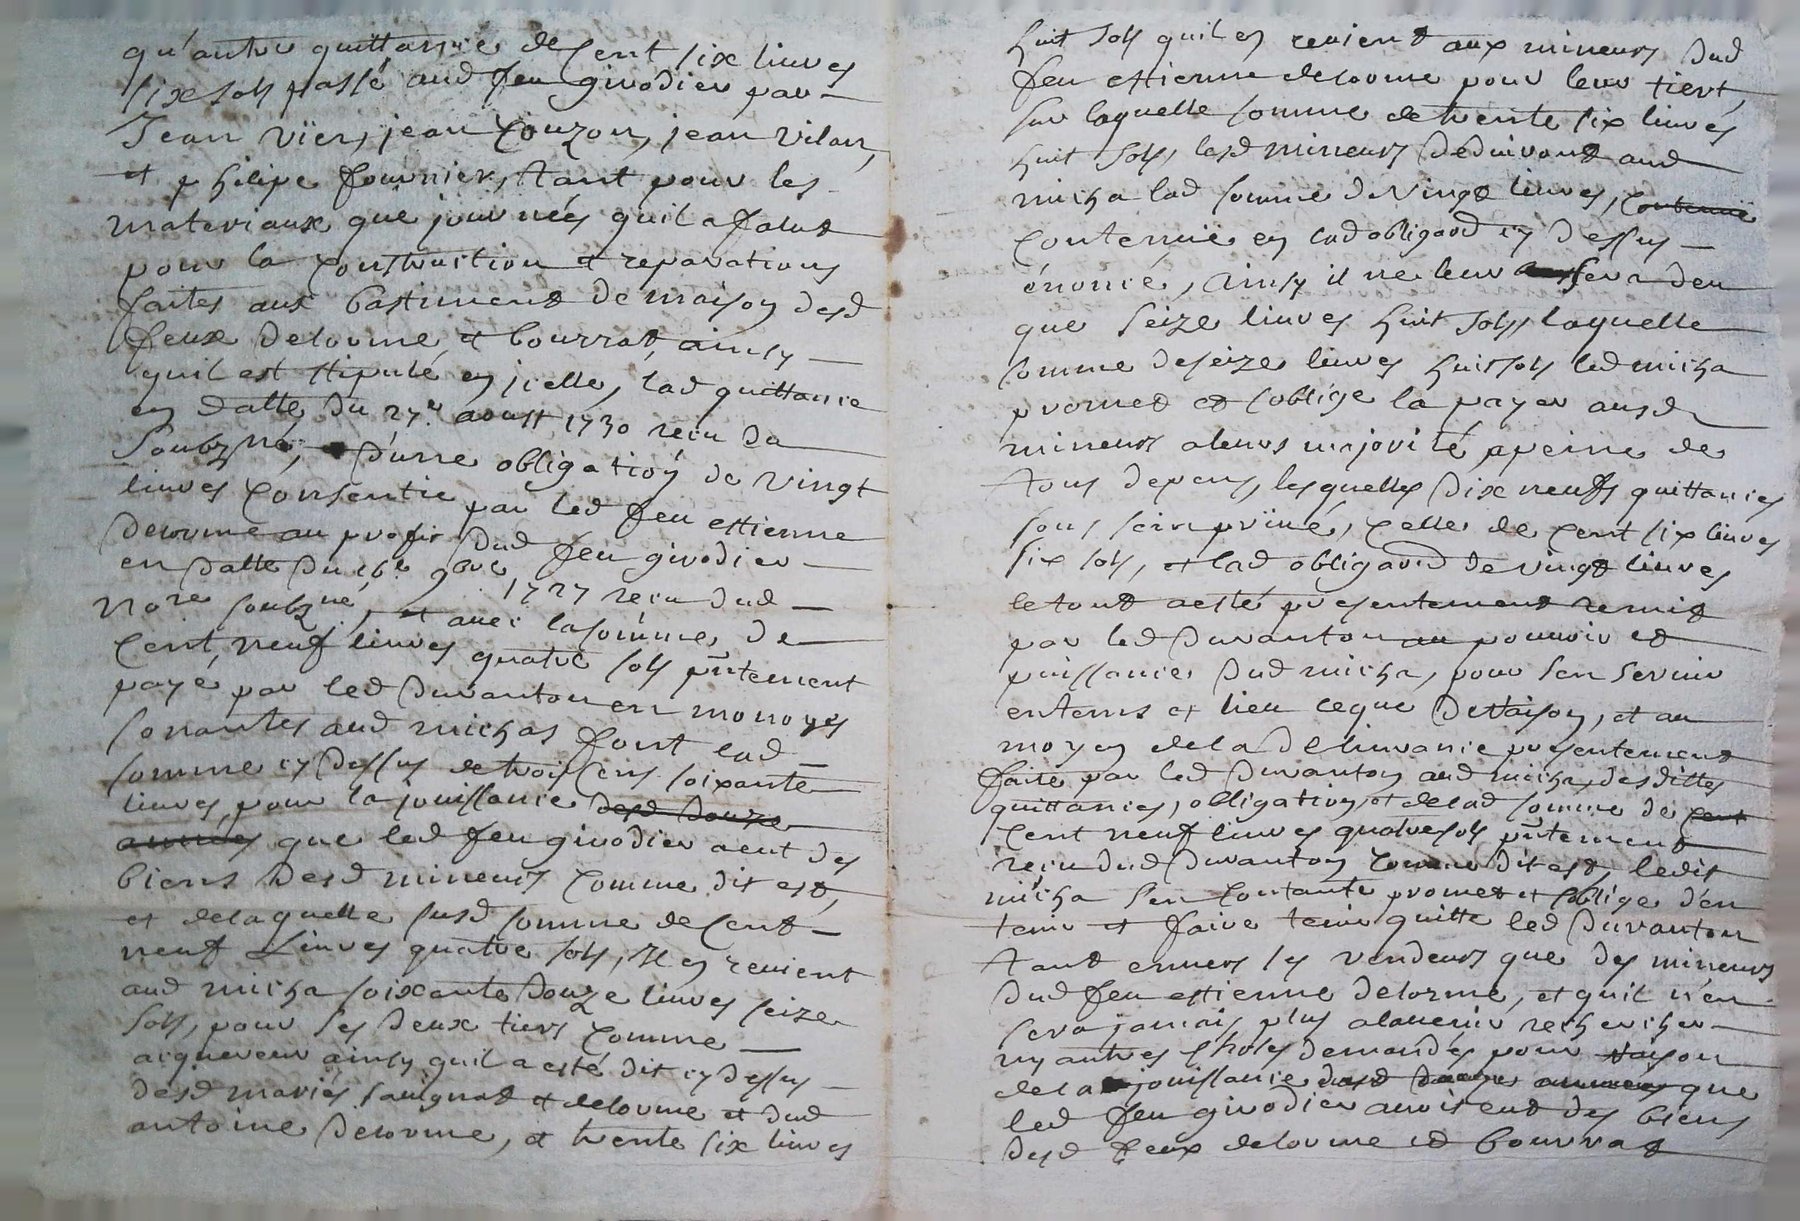 qu'autre quittance de Cent six livres
six sols passé aud feu givodier par
Jean vier, jean Couzon, jean vilar,
et philipe fournier, tant pour les
materiaux que journées quil a falut
pour la Construction et reparations
faites aux bastiments de maison desd
feux delorme et bourrat, ainsy
quil est stipulé en jcelle, lad quittance
en datte du 27e aoust 1730 receu du
Soubzné, d'une obligation de vingt
livres Consentie par led feu estienne
delorme au profit dud feu givodier
en datte du 16e 9bre 1727 receu dud
No.re soubzné, et avec la somme de
Cent neuf livres quatre sols pntement
payé par led duranton en monoyes
sonantes aud michas font lad
somme cy dessus de trois Cens soixante
livres, pour la jouissance desd douze
années que led feu givodier a eut des
biens desd mineurs Comme dit est,
et de laquelle susd somme de Cent
neuf Livres quatre sols, Il en revient
aud micha soixante douze livres seize
sols, pour ses deux tiers Comme
acquereur ainsy quil a esté dit cy dessus
desd mariés saugnat et delorme et dud
antoine delorme, et trente six livres
huit sols quil en revient aux mineurs dud
feu estienne delorme pour leur tiert,
sur laquelle somme de trente six livres
huit sols, lesd mineurs deduiront aud
micha lad somme de vingt livres, Contenuë
Contenuë en lad obligaon cy dessus
énoncé, ainsy il ne leur sera deu
que seize livres huit sols, laquelle
somme de seize livres huit sols led micha
promet et s'oblige la payer ausd
mineurs a leurs majorité, a peine de
tous depens, lesquelles dix neufs quittances
sous sein privé, Celle de Cent six livres
six sols, et lad obligaon de vingt livres
le tout a esté presentement remis
par led duranton au pouvoir et
puissance dud micha, pour s'en servir
en tems et lieu ce que de raison, et au
moyen de la delivrance presentement
faite par led duranton aud micha desdittes
quittances, obligation, et de lad somme de Cent
Cent neuf livres quatre sols pntement
receu dud duranton Comme dit est, ledit
micha s'en Contante promet et s'oblige d'en
tenir et faire tenir quitte led duranton
tant envers les vendeurs que des mineurs
dud feu estienne delorme, et quil n'en
sera jamais plus a l'avenir rechercher
ny autres choses demandés pour raison
de la jouissance desd douze années que
led feu givodier avoit eut des biens
desd feux delorme et bourrat